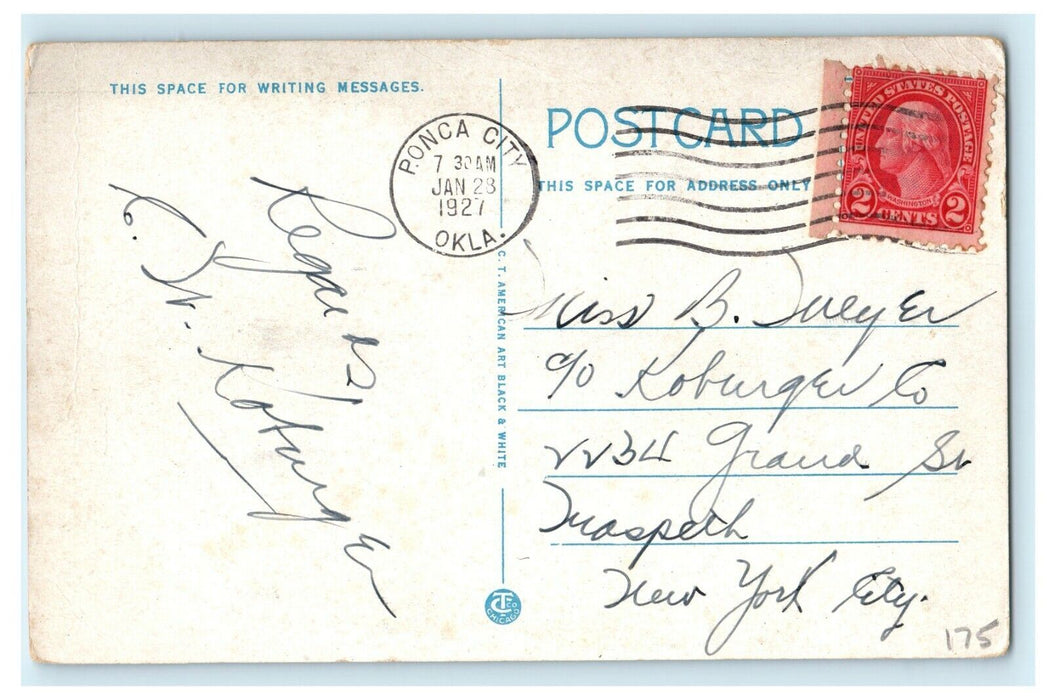 THIS SPACE FOR WRITING MESSAGES.
Regards
C. W. Koburger
PONCA CITY
7 30 AM
JAN 28
1927
OKLA.
POST CARD
THIS SPACE FOR ADDRESS ONLY
UNITED STATES POSTAGE
WASHINGTON
2 CENTS 2
C. T. AMERICAN ART BLACK & WHITE
CT CO
CHICAGO
Miss B.
c/o Koburger Co
2234 Grand St
Maspeth
New York City.
175